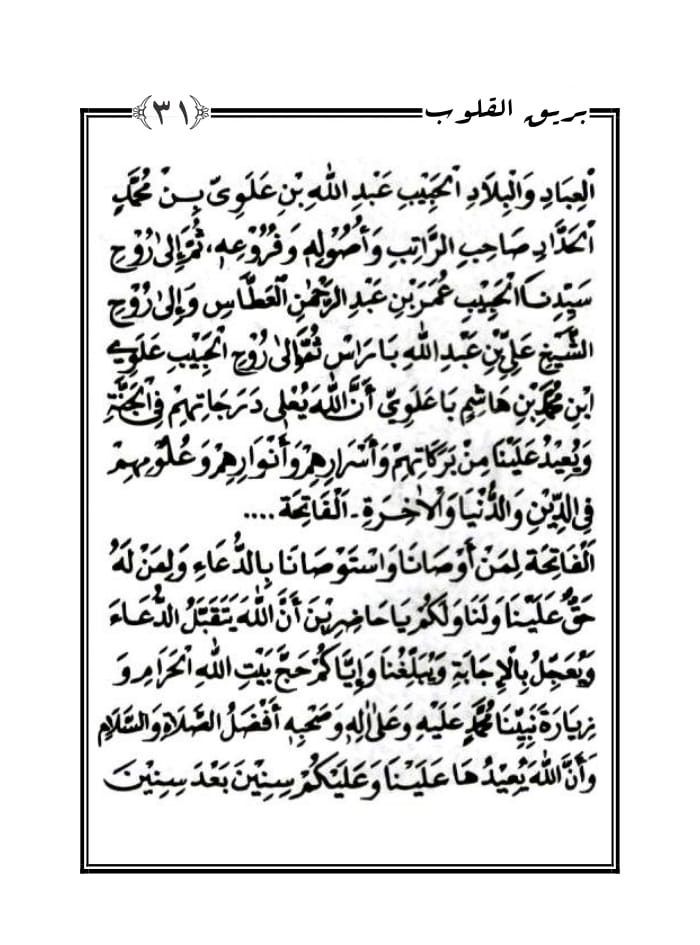 بريق القلوب ﴿٣١﴾
الْعِبَادِ وَالْبِلَادِ الْحَبِيْبِ عَبْدِ اللهِ بْنِ عَلَوِيّ بِـنْ مُحَمَّدٍ
الْحَدَّادِ صَاحِبِ الرَّاتِبِ وَأُصُوْلِهِ وَفُرُوْعِهِ، ثُمَّ إِلىٰ رُوْحِ
سَيِّدِنَـا الْحَبِيْبِ عُمَرَ بْنِ عَبْدِ الرَّحْمٰنِ الْعَطَّاسِ وَإِلىٰ رُوْحِ
الشَّيْخِ عَلِيِّ بْنِ عَبْدِ اللهِ بَارَاسْ ثُمَّ إِلىٰ رُوْحِ الْحَبِيْبِ عَلَوِيْ
ابْنِ مُحَمَّدِ بْنِ هَاشِمٍ بَاعَلَوِيّ أَنَّ اللهَ يُعْلِى دَرَجَاتِهِمْ فِى الْجَنَّةِ
وَيُعِيْدُ عَلَيْنَا مِنْ بَرَكَاتِهِمْ وَأَسْرَارِهِمْ وَأَنْوَارِهِمْ وَعُلُوْمِهِمْ
فِى الدِّيْنِ وَالدُّنْيَا وَالْاٰخِرَةِ ـ اَلْفَاتِحَة ....
اَلْفَاتِحَة لِمَنْ أَوْصَانَا وَاسْتَوْصَانَا بِالدُّعَاءِ وَلِمَنْ لَهُ
حَقٌّ عَلَيْـنَا وَلَنَا وَلَكُمْ يَا حَاضِرِيْنَ أَنَّ اللهَ يَتَقَبَّلُ الدُّعَـاءَ
وَيُعَجِّلُ بِالْإِجَابَةِ وَيُبَلِّغُنَا وَإِيَّاكُمْ حَجَّ بَيْتِ اللهِ الْحَرَامِ وَ
زِيَارَةَ نَبِيِّنَا مُحَمَّدٍ عَلَيْهِ وَعَلىٰ اٰلِهِ وَصَحْبِهِ أَفْضَلُ الصَّلَاةِ وَالسَّلَامِ
وَأَنَّ اللهَ يُعِيْدُهَا عَلَيْـنَا وَعَلَيْكُمْ سِنِيْنَ بَعْدَ سِنِيْنَ